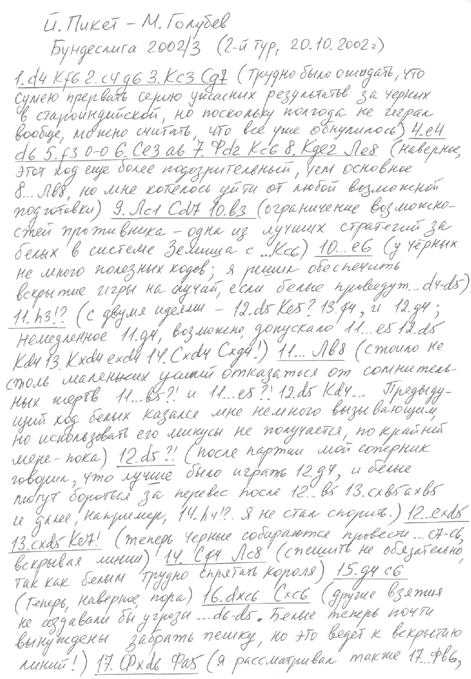 Й. Пикет – М. Голубев
Бундеслига 2002/3 (2-й тур, 20.10.2002г)
1.d4 Кf6 2.c4 g6 3.Кc3 Сg7 (трудно было ожидать, что
сумею прервать серию ужасных результатов за черных
в староиндийской, но поскольку полгода не играл
вообще, можно считать, что всё уже обнулилось) 4.e4
d6 5.f3 0-0 6.Сe3 a6 7.Фd2 Кc6 8.Кge2 Лe8 (наверное,
этот ход еще более подозрительный, чем основное
8...Лb8, но мне хотелось уйти от любой возможной
подготовки) 9.Лc1 Сd7 10.b3 (ограничение возможно-
стей противника – одна из лучших стратегий за
белых в системе Земиша с ...Кc6) 10...e6 (у чёрных
не много полезных ходов; я решил обеспечить
вскрытие игры на случай, если белые проведут ...d4-d5)
11.h3!? (с двумя идеями – 12.d5 Кe5? 13.g4, и 12.g4;
немедленное 11.g4, возможно, допускало 11...e5 12.d5
Кd4 13.Кxd4 exd4 14.Сxd4 Сxg4!) 11...Лb8 (стоило не
столь маленьких усилий отказаться от сомнитель-
ных жертв 11...b5?! и 11...e5?! 12.d5 Кd4... Предыду-
щий ход белых казался мне немного вызывающим,
но использовать его минусы не получается, по крайней
мере – пока) 12.d5?! (после партии мой соперник
говорил, что лучше было играть 12.g4, и белые
могут бороться за перевес после 12...b5 13.cxb5 axb5
и далее, например, 14.h4!? Я не стал спорить.) 12...exd5
13.cxd5 Кe7! (теперь черные собираются провести ...c7-c6,
вскрывая линии) 14. Сg4 Лc8 (спешить не обязательно,
так как белым трудно спрятать короля) 15.g4 c6
(Теперь, наверное, пора) 16.dxc6 Сxc6 (другие взятия
не создавали бы угрозы ...d6-d5. Белые теперь почти
вынуждены забрать пешку, но это ведет к вскрытию
линий!) 17.Фxd6 Фa5 (Я рассматривал также 17...Фb6,